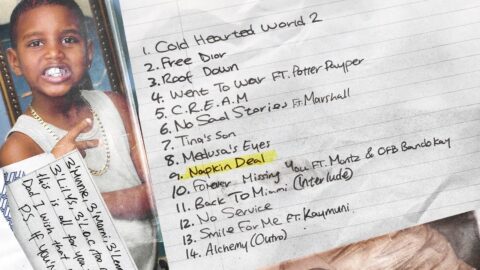 1. Cold Hearted World 2
2. Free Dior
3. Roof Down
4. Went To War FT. Potter Payper
5. C.R.E.A.M
6. No Sad Stories FT. Marshall
7. Tina's Son
8. Medusa's Eyes
9. Napkin Deal
10. Forever Missing You FT. Mortz & OFB Bandokay
11. Back To Miami (Interlude)
12. No Service
13. Smile For Me Ft. Kaymuni
14. Alchemy (Outro)
this is all for you
I wish that
P.S IF